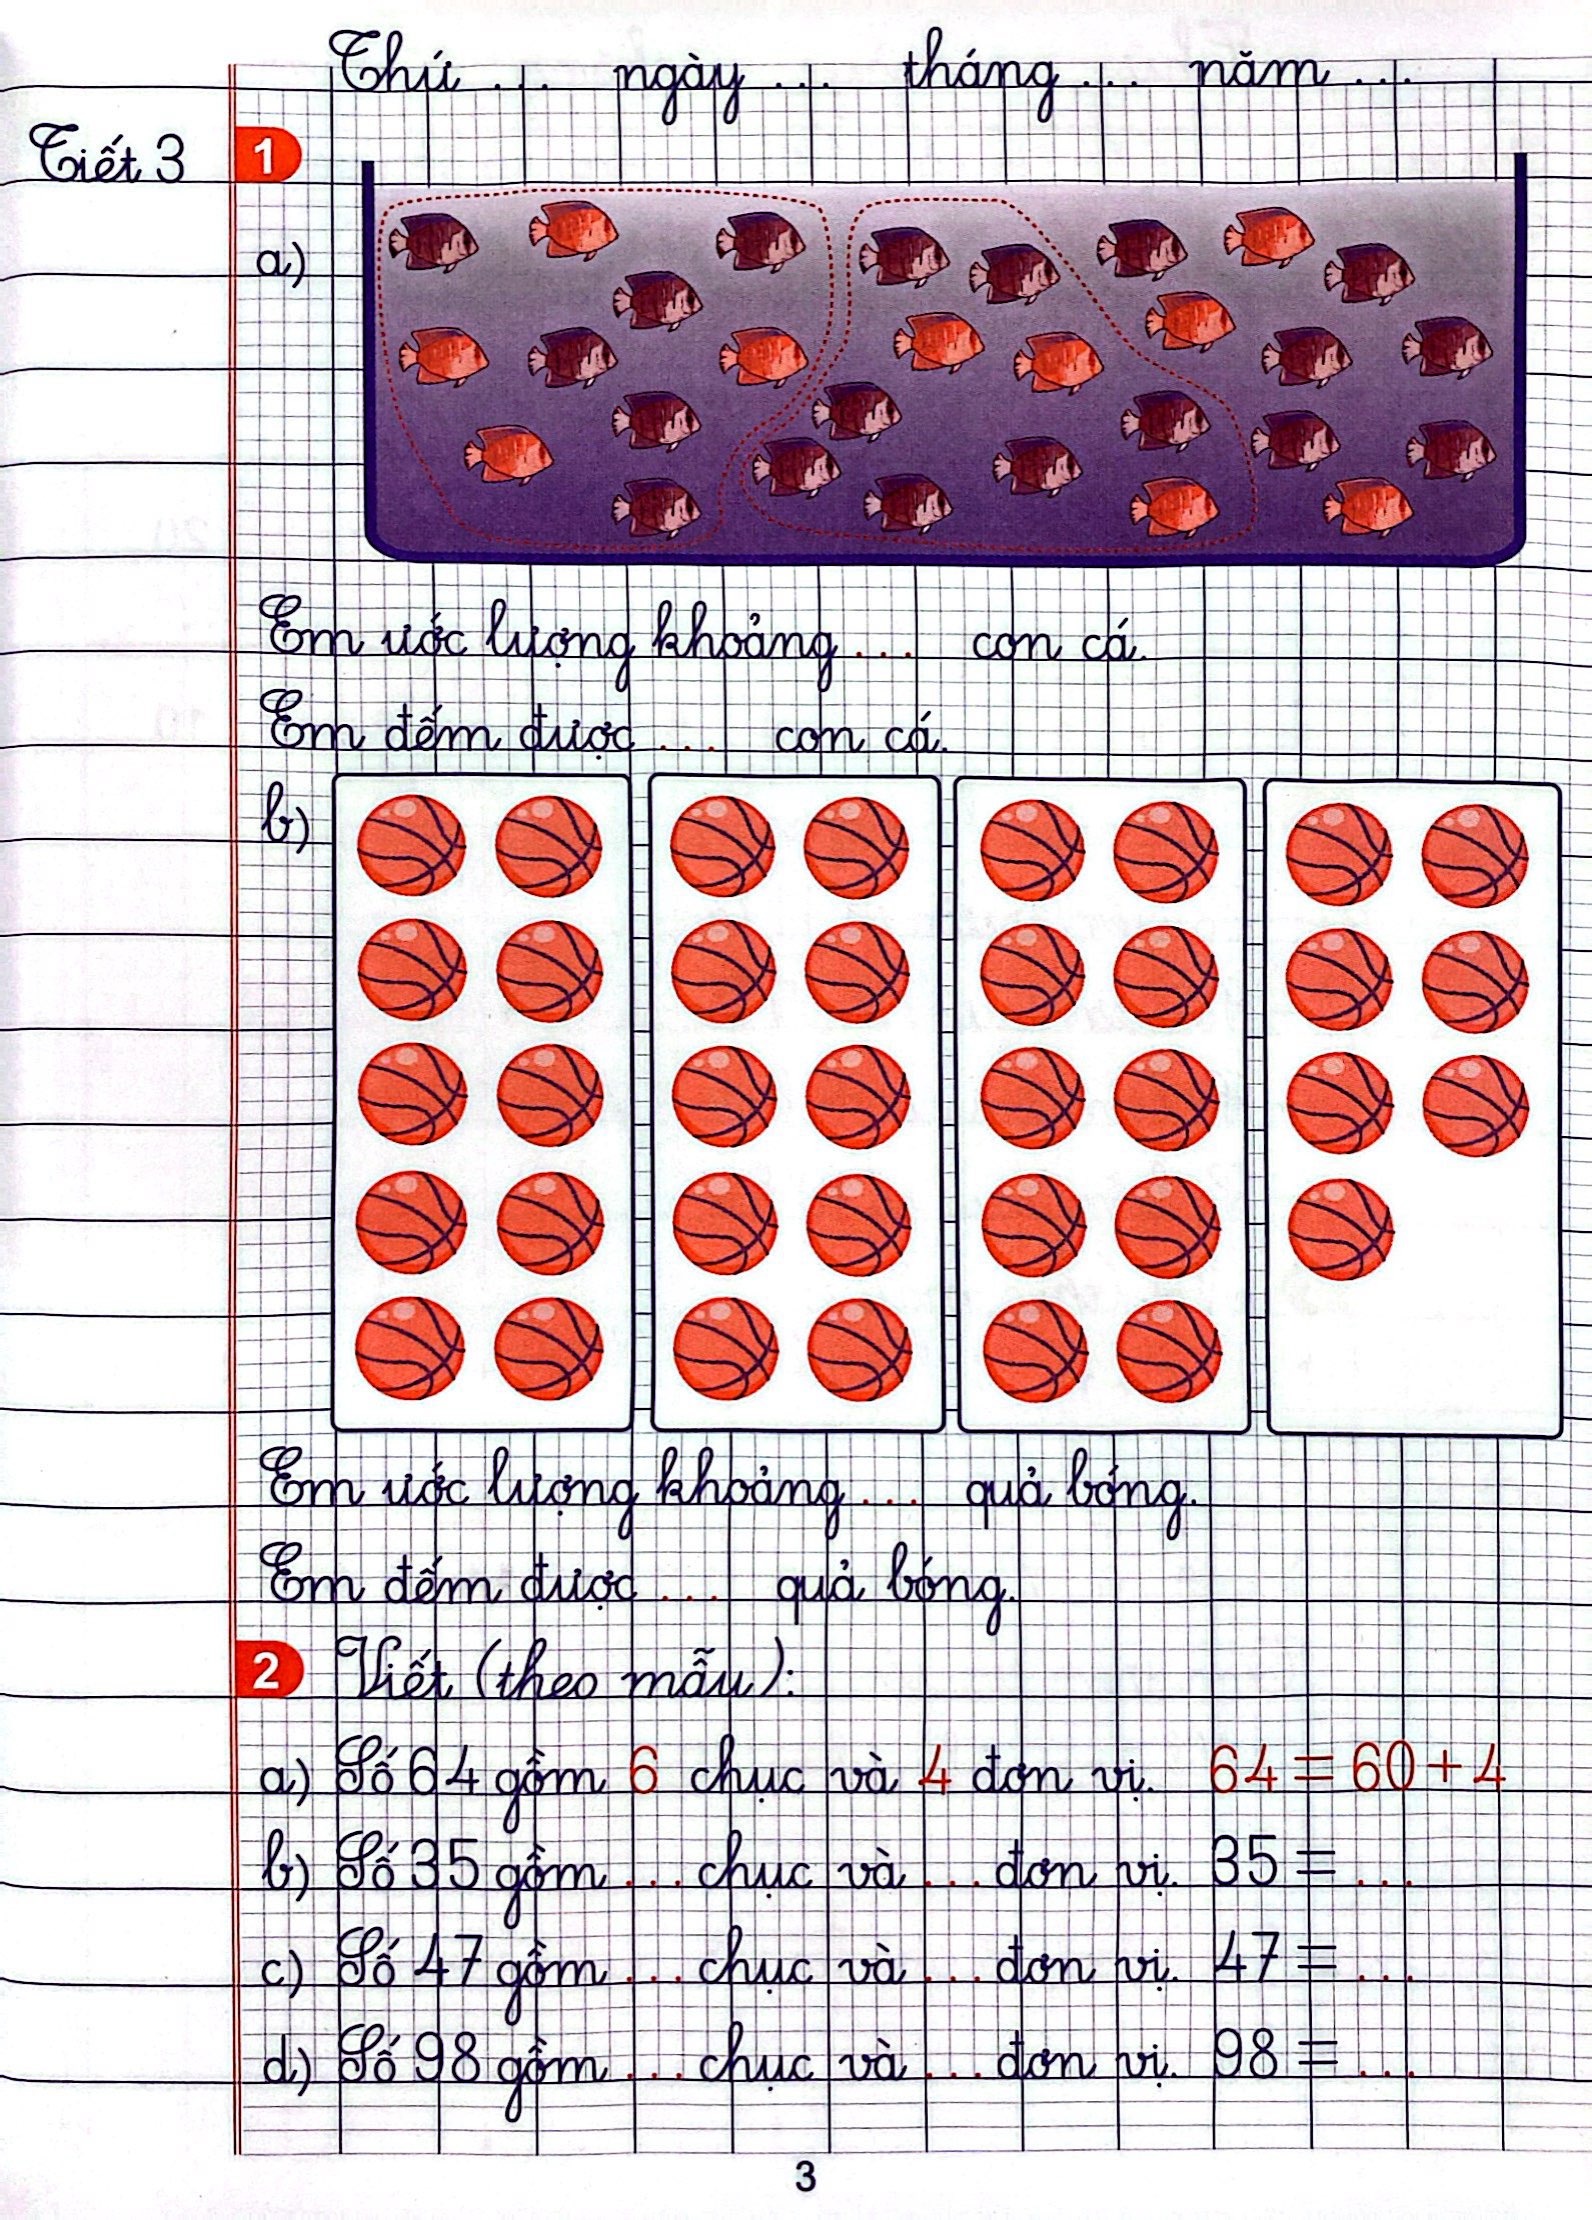 Thứ ... ngày ... tháng ... năm ...
Tiết 3
1
a)
Em ước lượng khoảng ... con cá.
Em đếm được ... con cá.
b)
Em ước lượng khoảng ... quả bóng.
Em đếm được ... quả bóng.
2 Viết (theo mẫu):
a) Số 64 gồm 6 chục và 4 đơn vị. 64 = 60 + 4
b) Số 35 gồm ... chục và ... đơn vị. 35 = ...
c) Số 47 gồm ... chục và ... đơn vị. 47 = ...
d) Số 98 gồm ... chục và ... đơn vị. 98 = ...
3